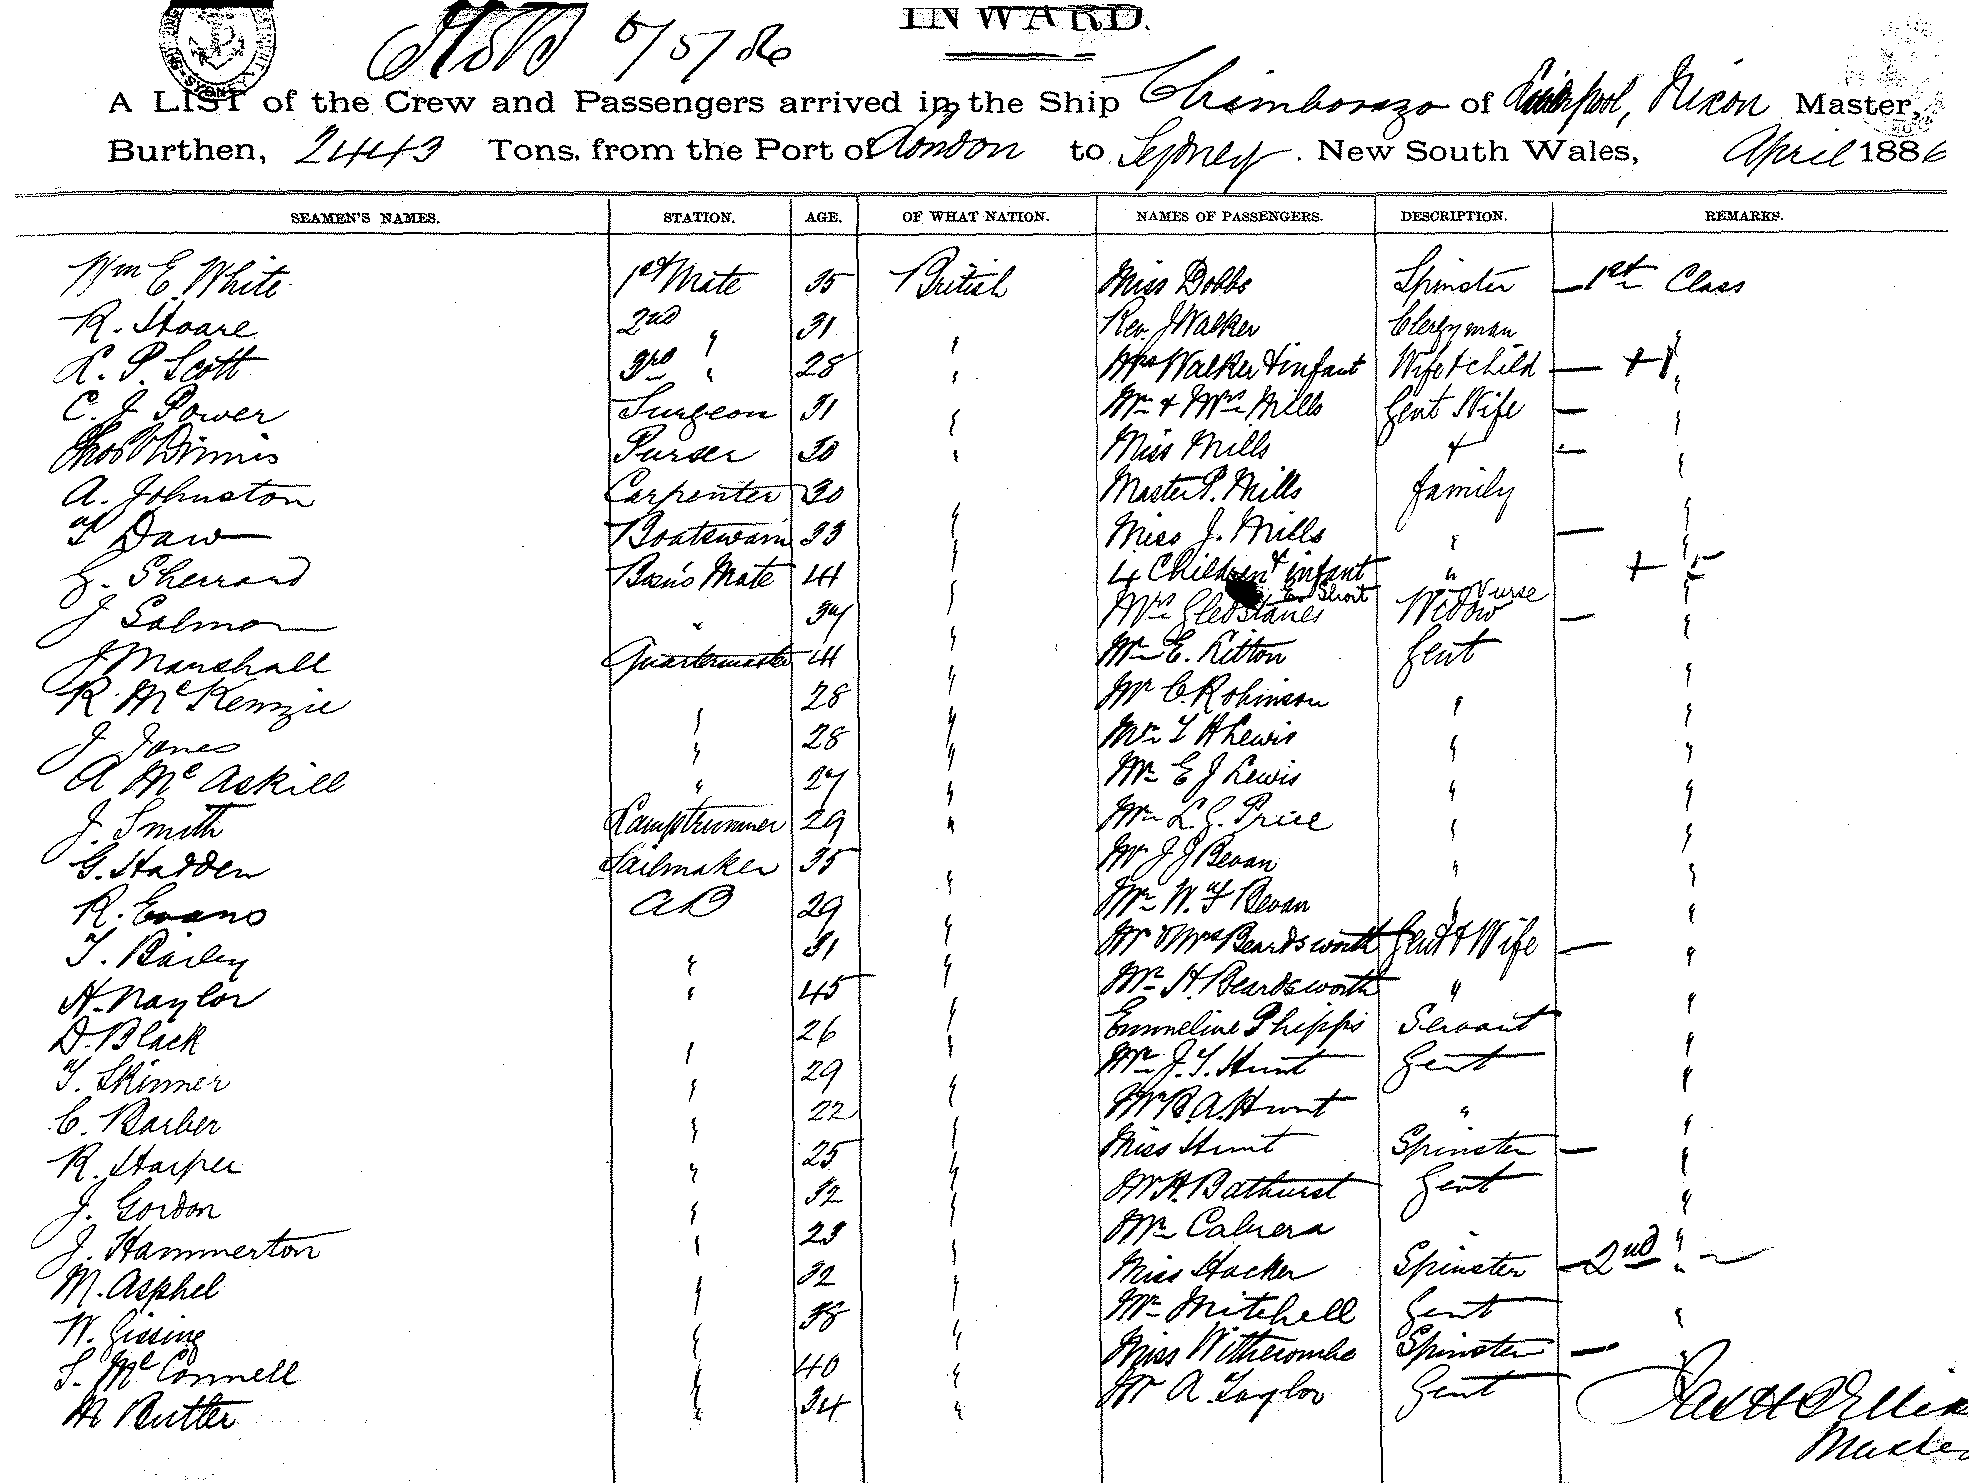 INWARD.
5/5/86
A LIST of the Crew and Passengers arrived in the Ship Chimborazo of Liverpool, Nixon Master,
Burthen, 2443 Tons, from the Port of London to Sydney. New South Wales, April 1886
SEAMEN'S NAMES. STATION. AGE. OF WHAT NATION. NAMES OF PASSENGERS. DESCRIPTION. REMARKS.
Wm E. White 1st Mate 35 British Miss Dobbs Spinster — 1st Class
R. Hoare 2nd " 31 " Rev. J Walker Clergyman "
L. P. Scott 3rd " 28 " Mrs Walker & infant Wife & child — + 1 "
C. J. Power Surgeon 31 " Mr & Mrs Mills Gent Wife — "
Thos Dinnis Purser 30 " Miss Mills & — "
A. Johnston Carpenter 30 " Master P. Mills family "
T Daw Boatswain 33 " Miss J. Mills " — "
G. Sherrard Bosn's Mate 41 " 4 Children & infant " + "
E. Short Nurse
J Salmon " 37 " Mrs Gledstanes Widow — "
J Marshall Quartermaster 41 " Mr E. Kitton Gent "
R. McKenzie " 28 " Mr C. Robinson " "
J Jones " 28 " Mr T H Lewis " "
A McAskill " 27 " Mr E J Lewis " "
J. Smith Lamptrimmer 29 " Mr L. G. Price " "
G. Hadden Sailmaker 35 " Mr J J Bevan " "
R. Evans AB 29 " Mr W. F Bevan " "
T. Bailey " 31 " Mr & Mrs Beardsworth Gent & Wife — "
H. Naylor " 45 " Mr H. Beardsworth " "
D. Black " 26 " Emmeline Phipps Servant "
T. Skinner " 29 " Mr J. T. Hunt Gent "
C. Barber " 22 " Mr B. A. Hunt " "
R. Harper " 25 " Miss Hunt Spinster — "
J. Gordon " 32 " Mr H. Bathurst Gent "
J. Hammerton " 23 " Mr Cabrera " "
M. Asphel " 32 " Miss Hacker Spinster — 2nd "
W. Gissing " 38 " Mr Mitchell Gent "
S. McConnell " 40 " Miss Withecombe Spinster — "
M Butler " 34 " Mr A. Taylor Gent
Master